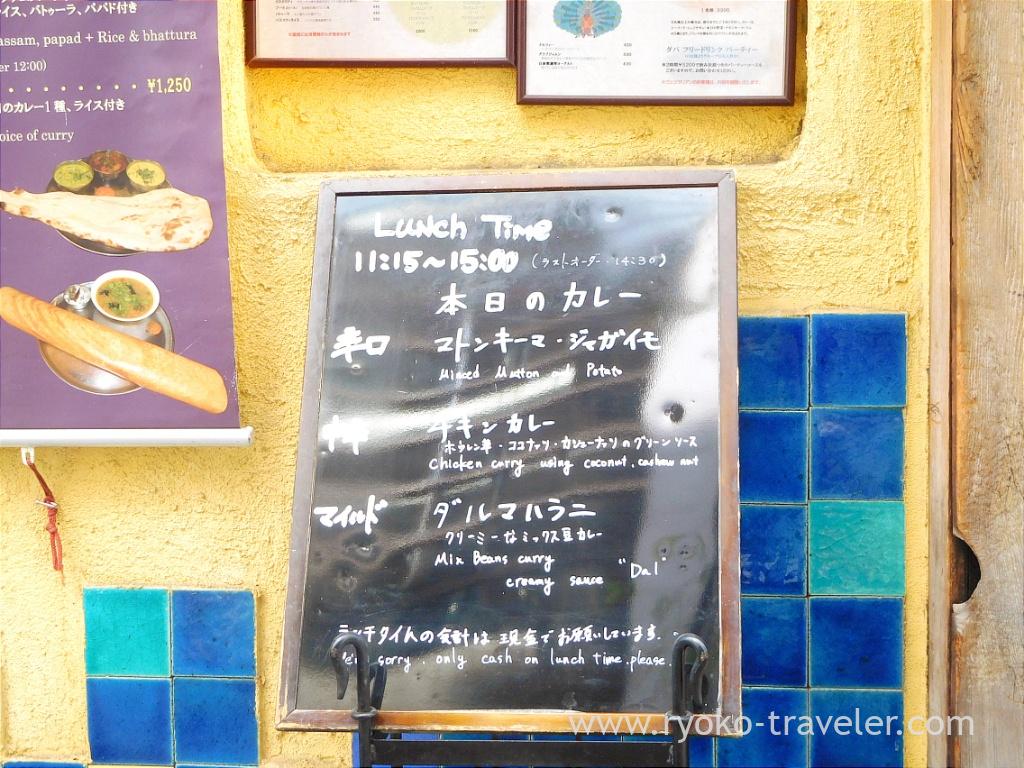 イス、パトゥーラ、パパド付き
assam, papad + Rice & bhattura
er 12:00)
¥1,250
のカレー1種、ライス付き
oice of curry
ダバ フリードリンク パーティー
LUNCH TIME
11:15～15:00 (ラストオーダー・14:30)
本日のカレー
辛口 マトンキーマ・ジャガイモ
Minced Mutton and Potato
中辛 チキンカレー
ホウレン草・ココナッツ・カシューナッツのグリーンソース
Chicken curry using coconut, cashew nut
マイルド ダルマハラニ
クリーミーなミックス豆カレー
Mix Beans curry "Dal"
creamy sauce
ランチタイムの会計は現金でお願いしています。
We're sorry. only cash on lunch time, please.
www.ryoko-traveler.com